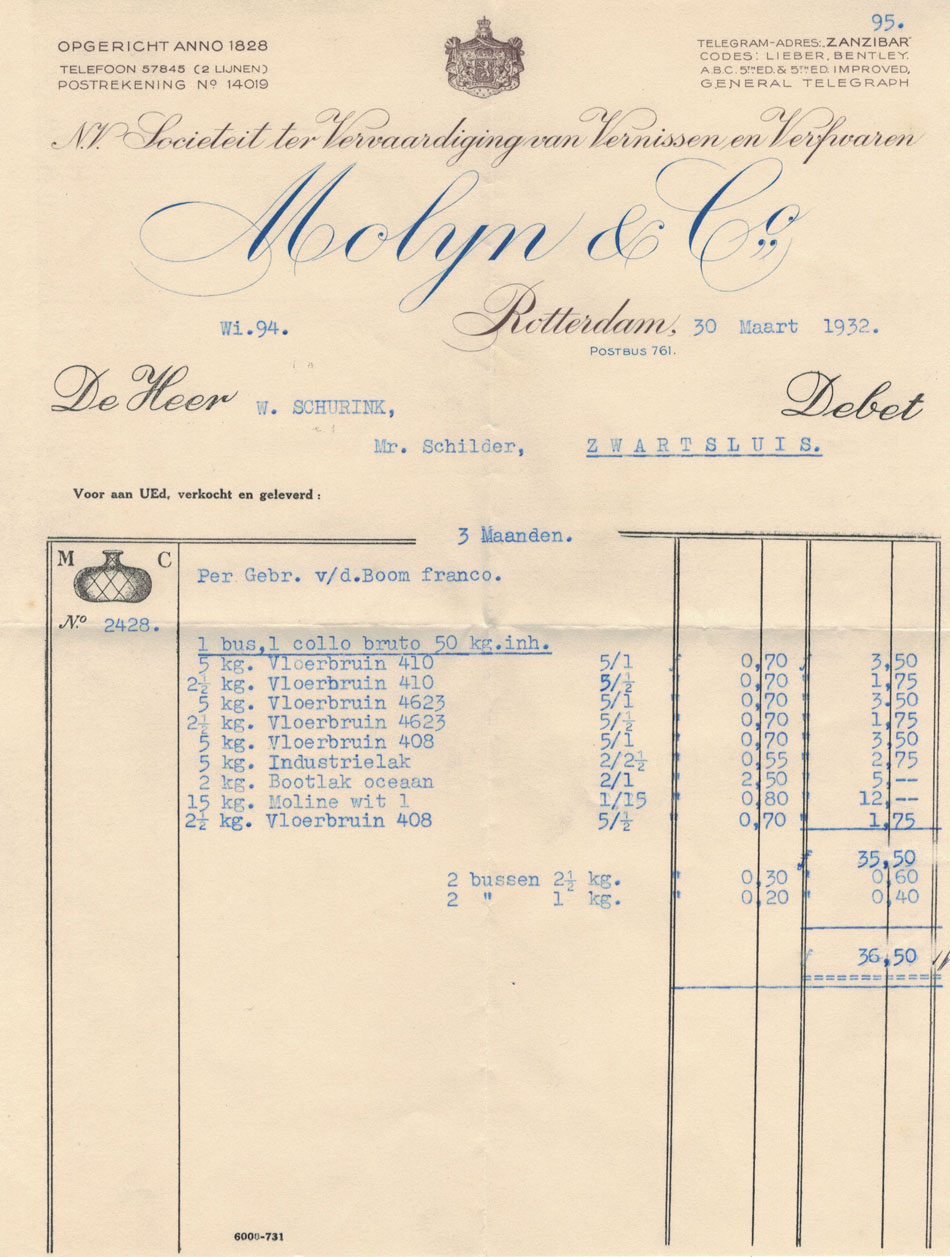 95.
OPGERICHT ANNO 1828
TELEFOON 57845 (2 LIJNEN)
POSTREKENING Nº 14019
TELEGRAM-ADRES: „ZANZIBAR"
CODES: LIEBER, BENTLEY.
A.B.C. 5TH ED. & 5TH ED. IMPROVED,
GENERAL TELEGRAPH
N.V. Societeit ter Vervaardiging van Vernissen en Verfwaren
Molyn & Co
Wi.94.
Rotterdam, 30 Maart 1932.
POSTBUS 761.
De Heer W. SCHURINK, Debet
Mr. Schilder, ZWARTSLUIS.
Voor aan UEd, verkocht en geleverd:
3 Maanden.
M C
Per Gebr. v/d.Boom franco.
No. 2428.
1 bus,1 collo bruto 50 kg.inh.
5 kg. Vloerbruin 410 5/1 ƒ 0,70 ƒ 3,50
2½ kg. Vloerbruin 410 5/½ " 0,70 " 1,75
5 kg. Vloerbruin 4623 5/1 " 0,70 " 3.50
2½ kg. Vloerbruin 4623 5/½ " 0,70 " 1,75
5 kg. Vloerbruin 408 5/1 " 0,70 " 3,50
5 kg. Industrielak 2/2½ " 0,55 " 2,75
2 kg. Bootlak oceaan 2/1 " 2,50 " 5,--
15 kg. Moline wit 1 1/15 " 0,80 " 12,--
2½ kg. Vloerbruin 408 5/½ " 0,70 " 1,75
ƒ 35,50
2 bussen 2½ kg. " 0,30 " 0,60
2 " 1 kg. " 0,20 " 0,40
ƒ 36,50
6000-731